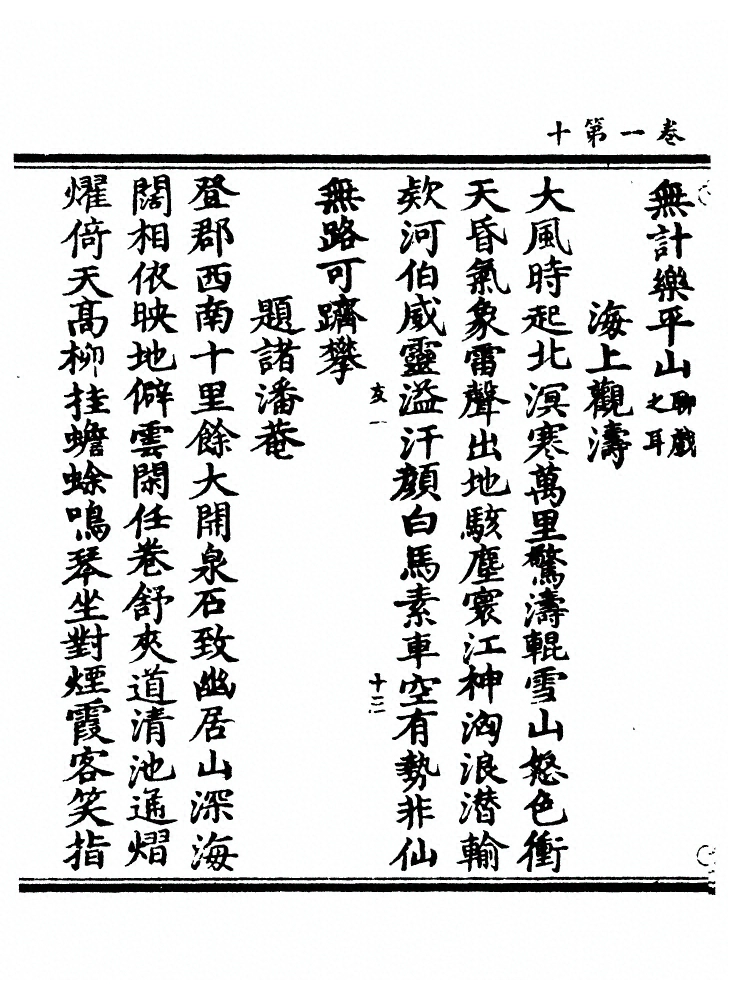 卷一第十
無計樂平山聊戲之耳
海上觀濤
大風時起北溟寒萬里驚濤輥雪山怒色衝
天昏氣象雷聲出地駭塵寰江神洶浪潛輸
欵河伯威靈溢汗顔白馬素車空有勢非仙
友一 十二
無路可躋攀
題諸潘菴
登郡西南十里餘大開泉石致幽居山深海
闊相依映地僻雲閑任卷舒夾道清池通熠
燿倚天髙柳挂蟾蜍鳴琴坐對煙霞客笑指